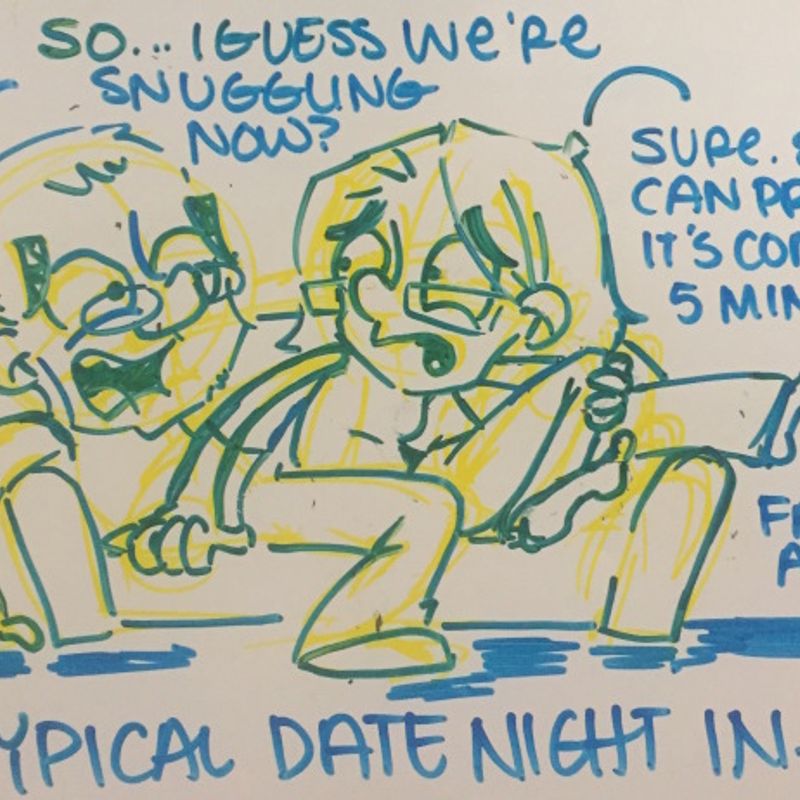 SO... I GUESS WE'RE
SNUGGLING
NOW?
SURE.
CAN
IT'S
5
TYPICAL DATE NIGHT IN